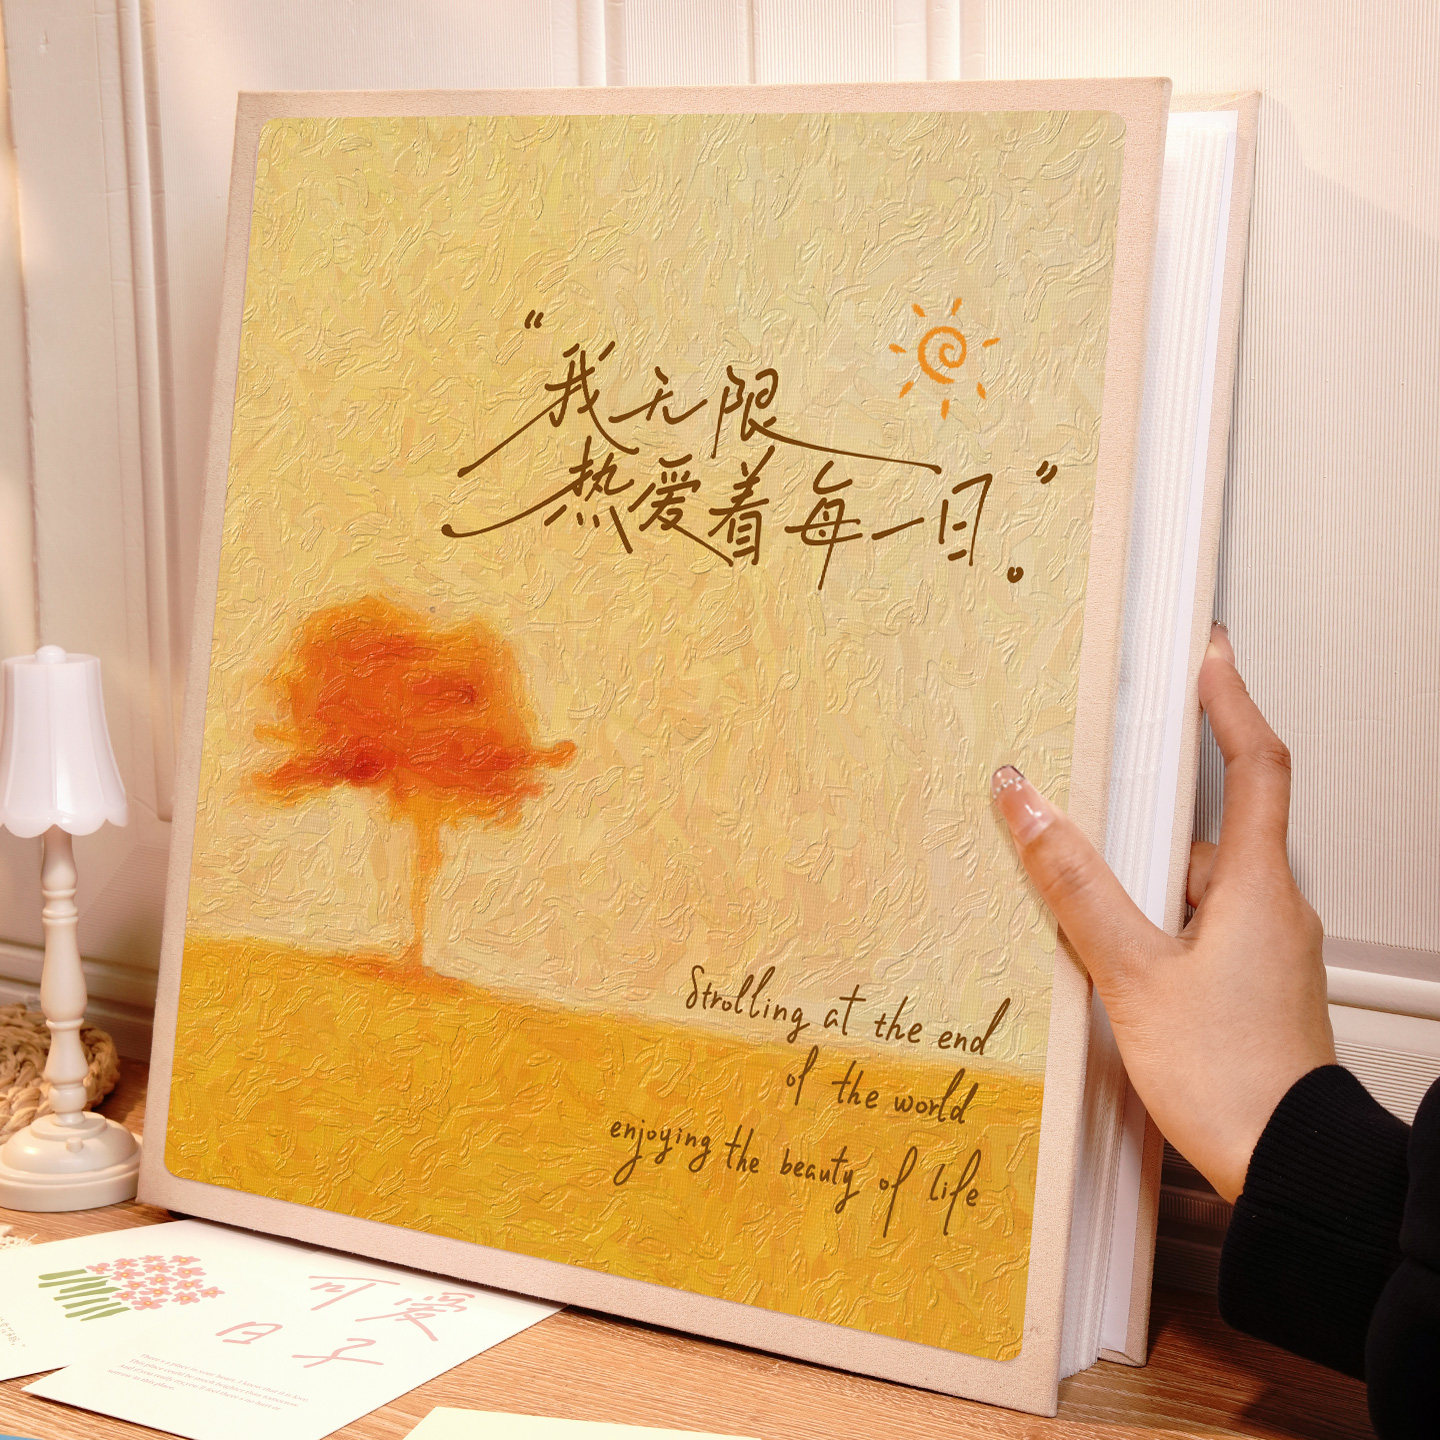 “我无限
热爱着每一日。”
Strolling at the end
of the world
enjoying the beauty of life
可爱
日子